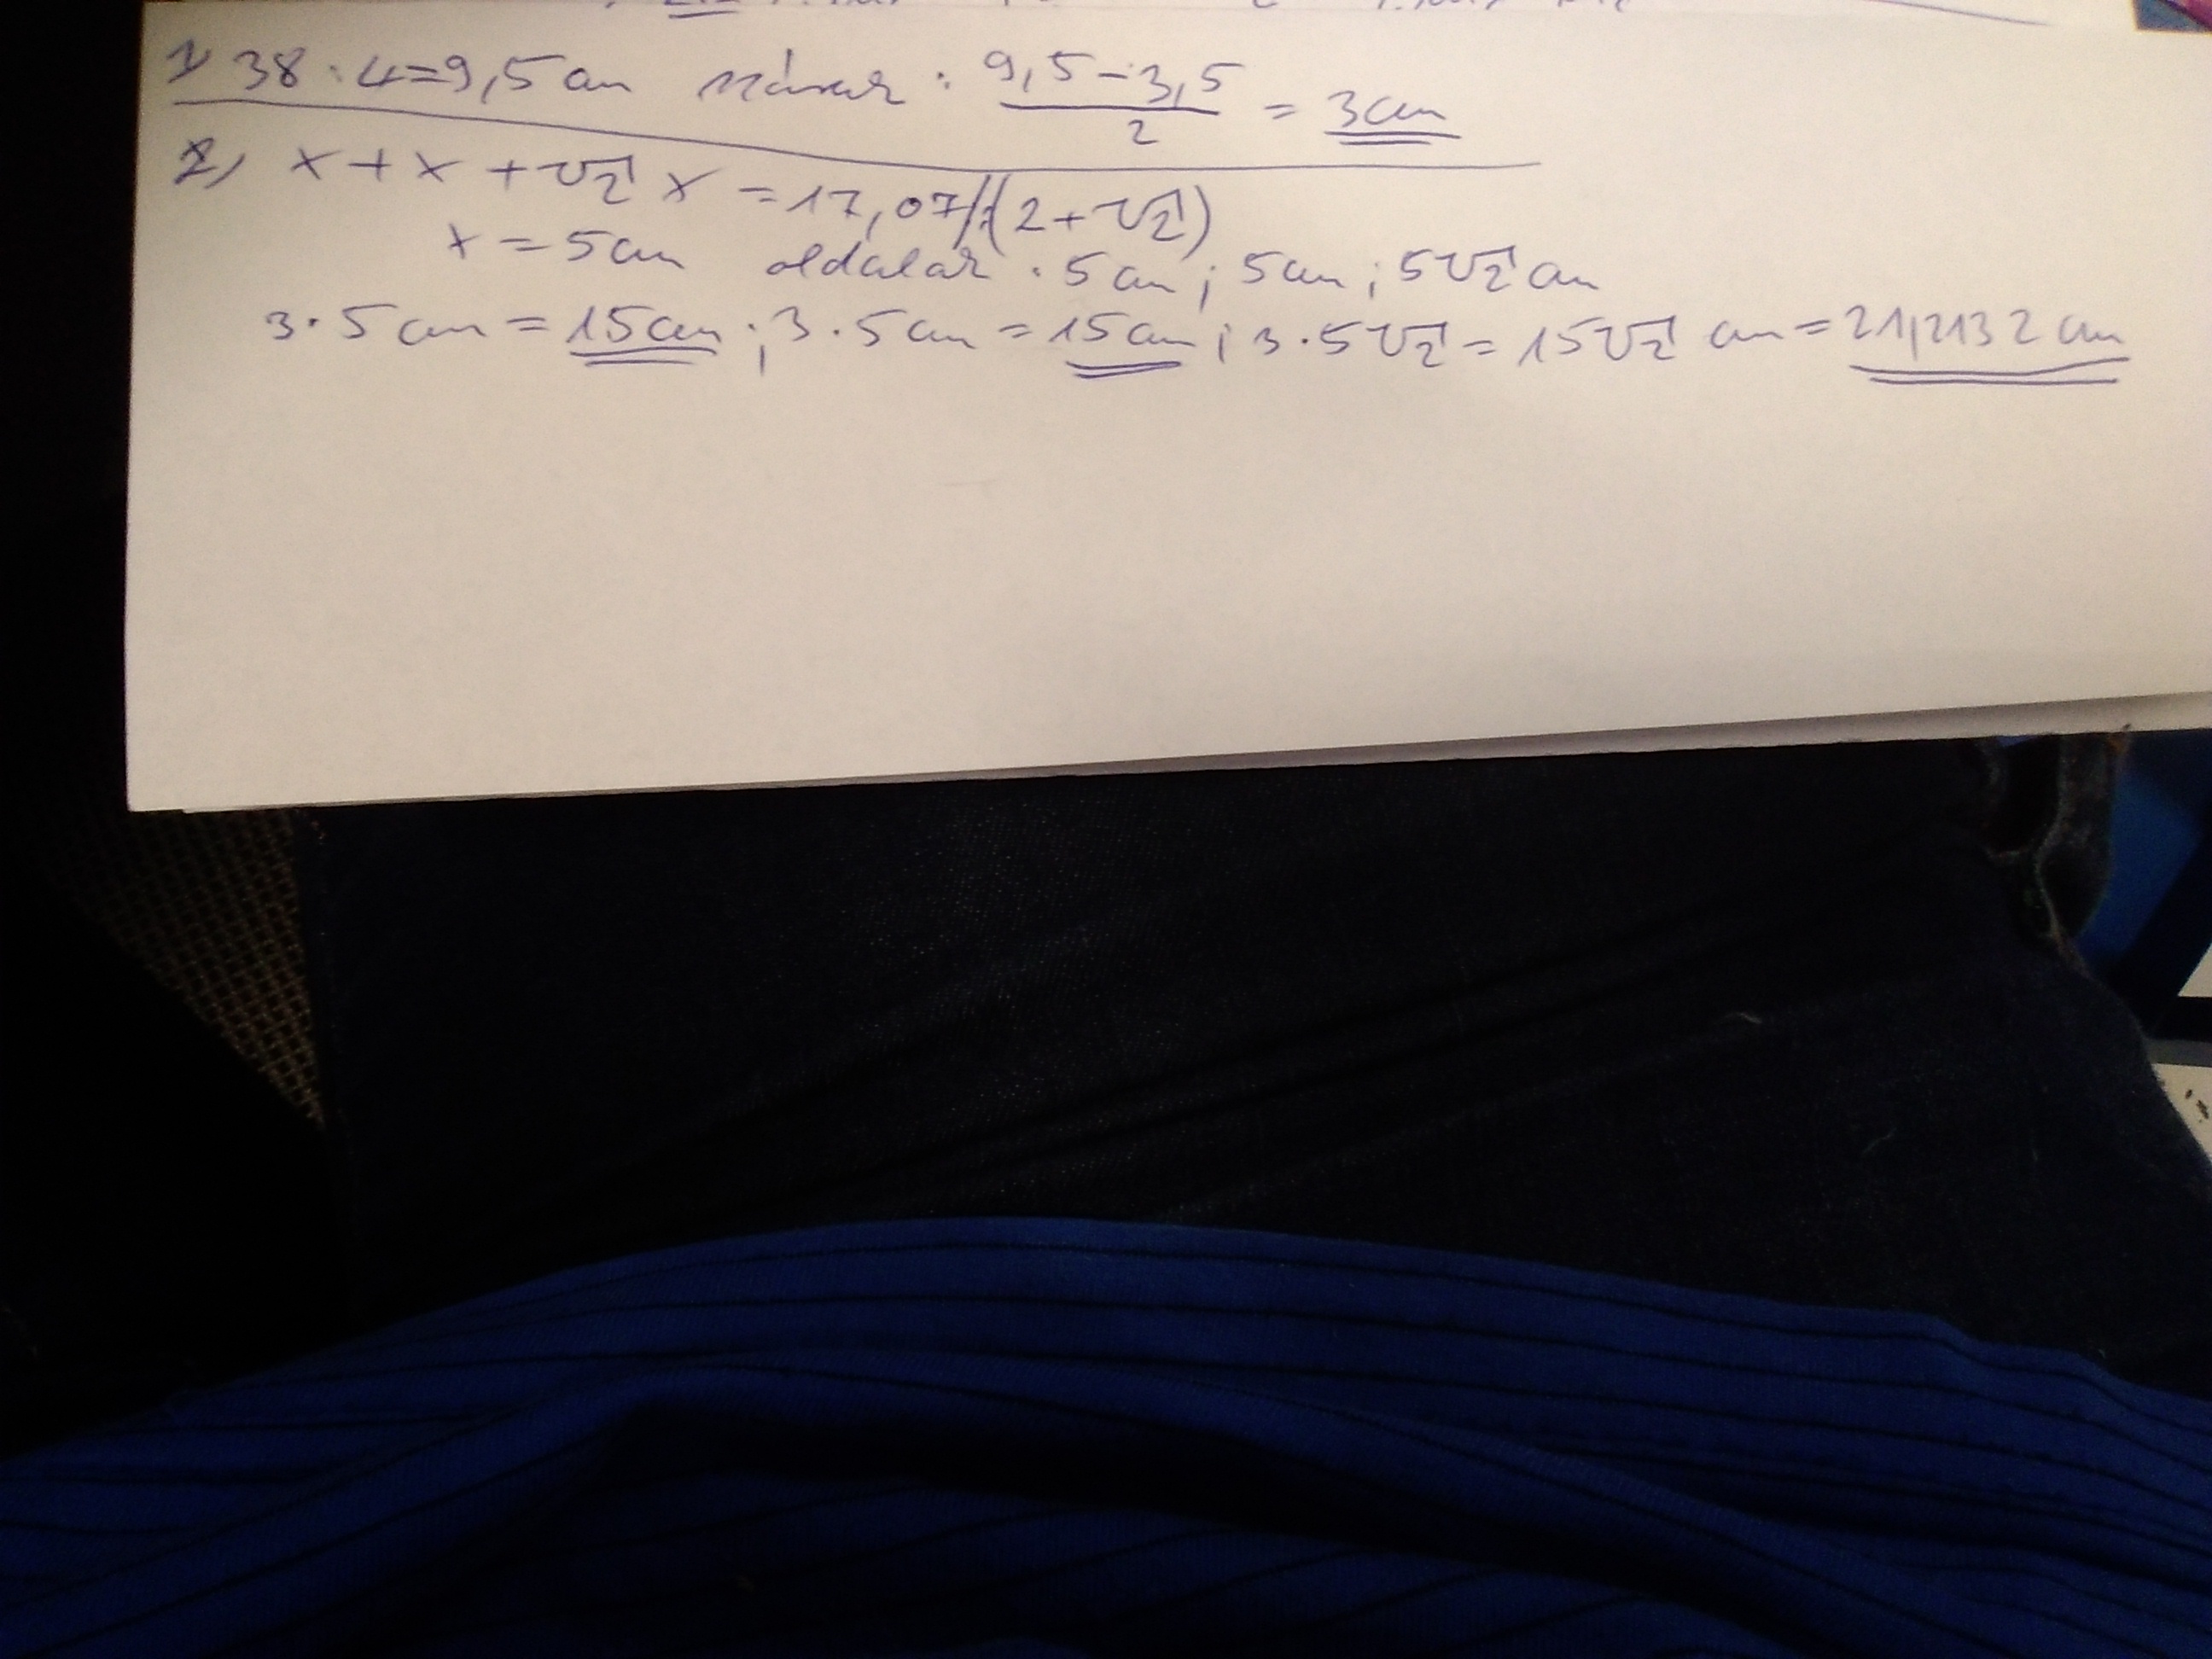 1, 38 : 4 = 9,5 cm szárak : (9,5 - 3,5)/2 = 3 cm
2, x + x + √2 x = 17,07 /:(2 + √2)
x = 5 cm oldalak : 5 cm ; 5 cm ; 5√2 cm
3 · 5 cm = 15 cm ; 3 · 5 cm = 15 cm ; 3 · 5√2 = 15√2 cm = 21,2132 cm